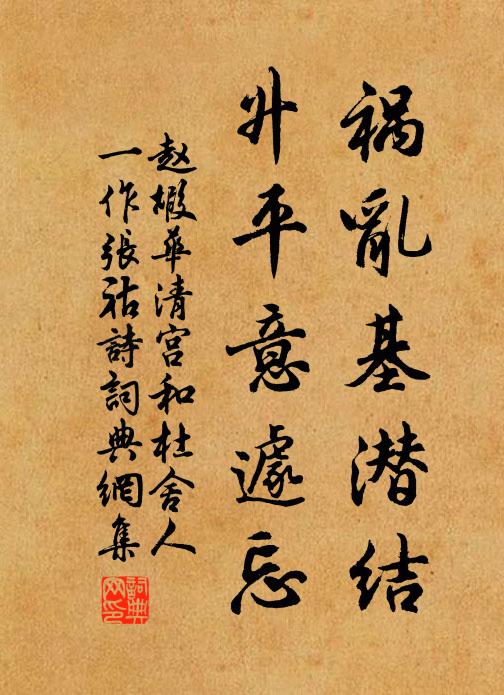 祸亂基潜结
升平意遽忘
赵嘏華清宫和杜舍人
一作張祜詩詞典網集
詞典网印